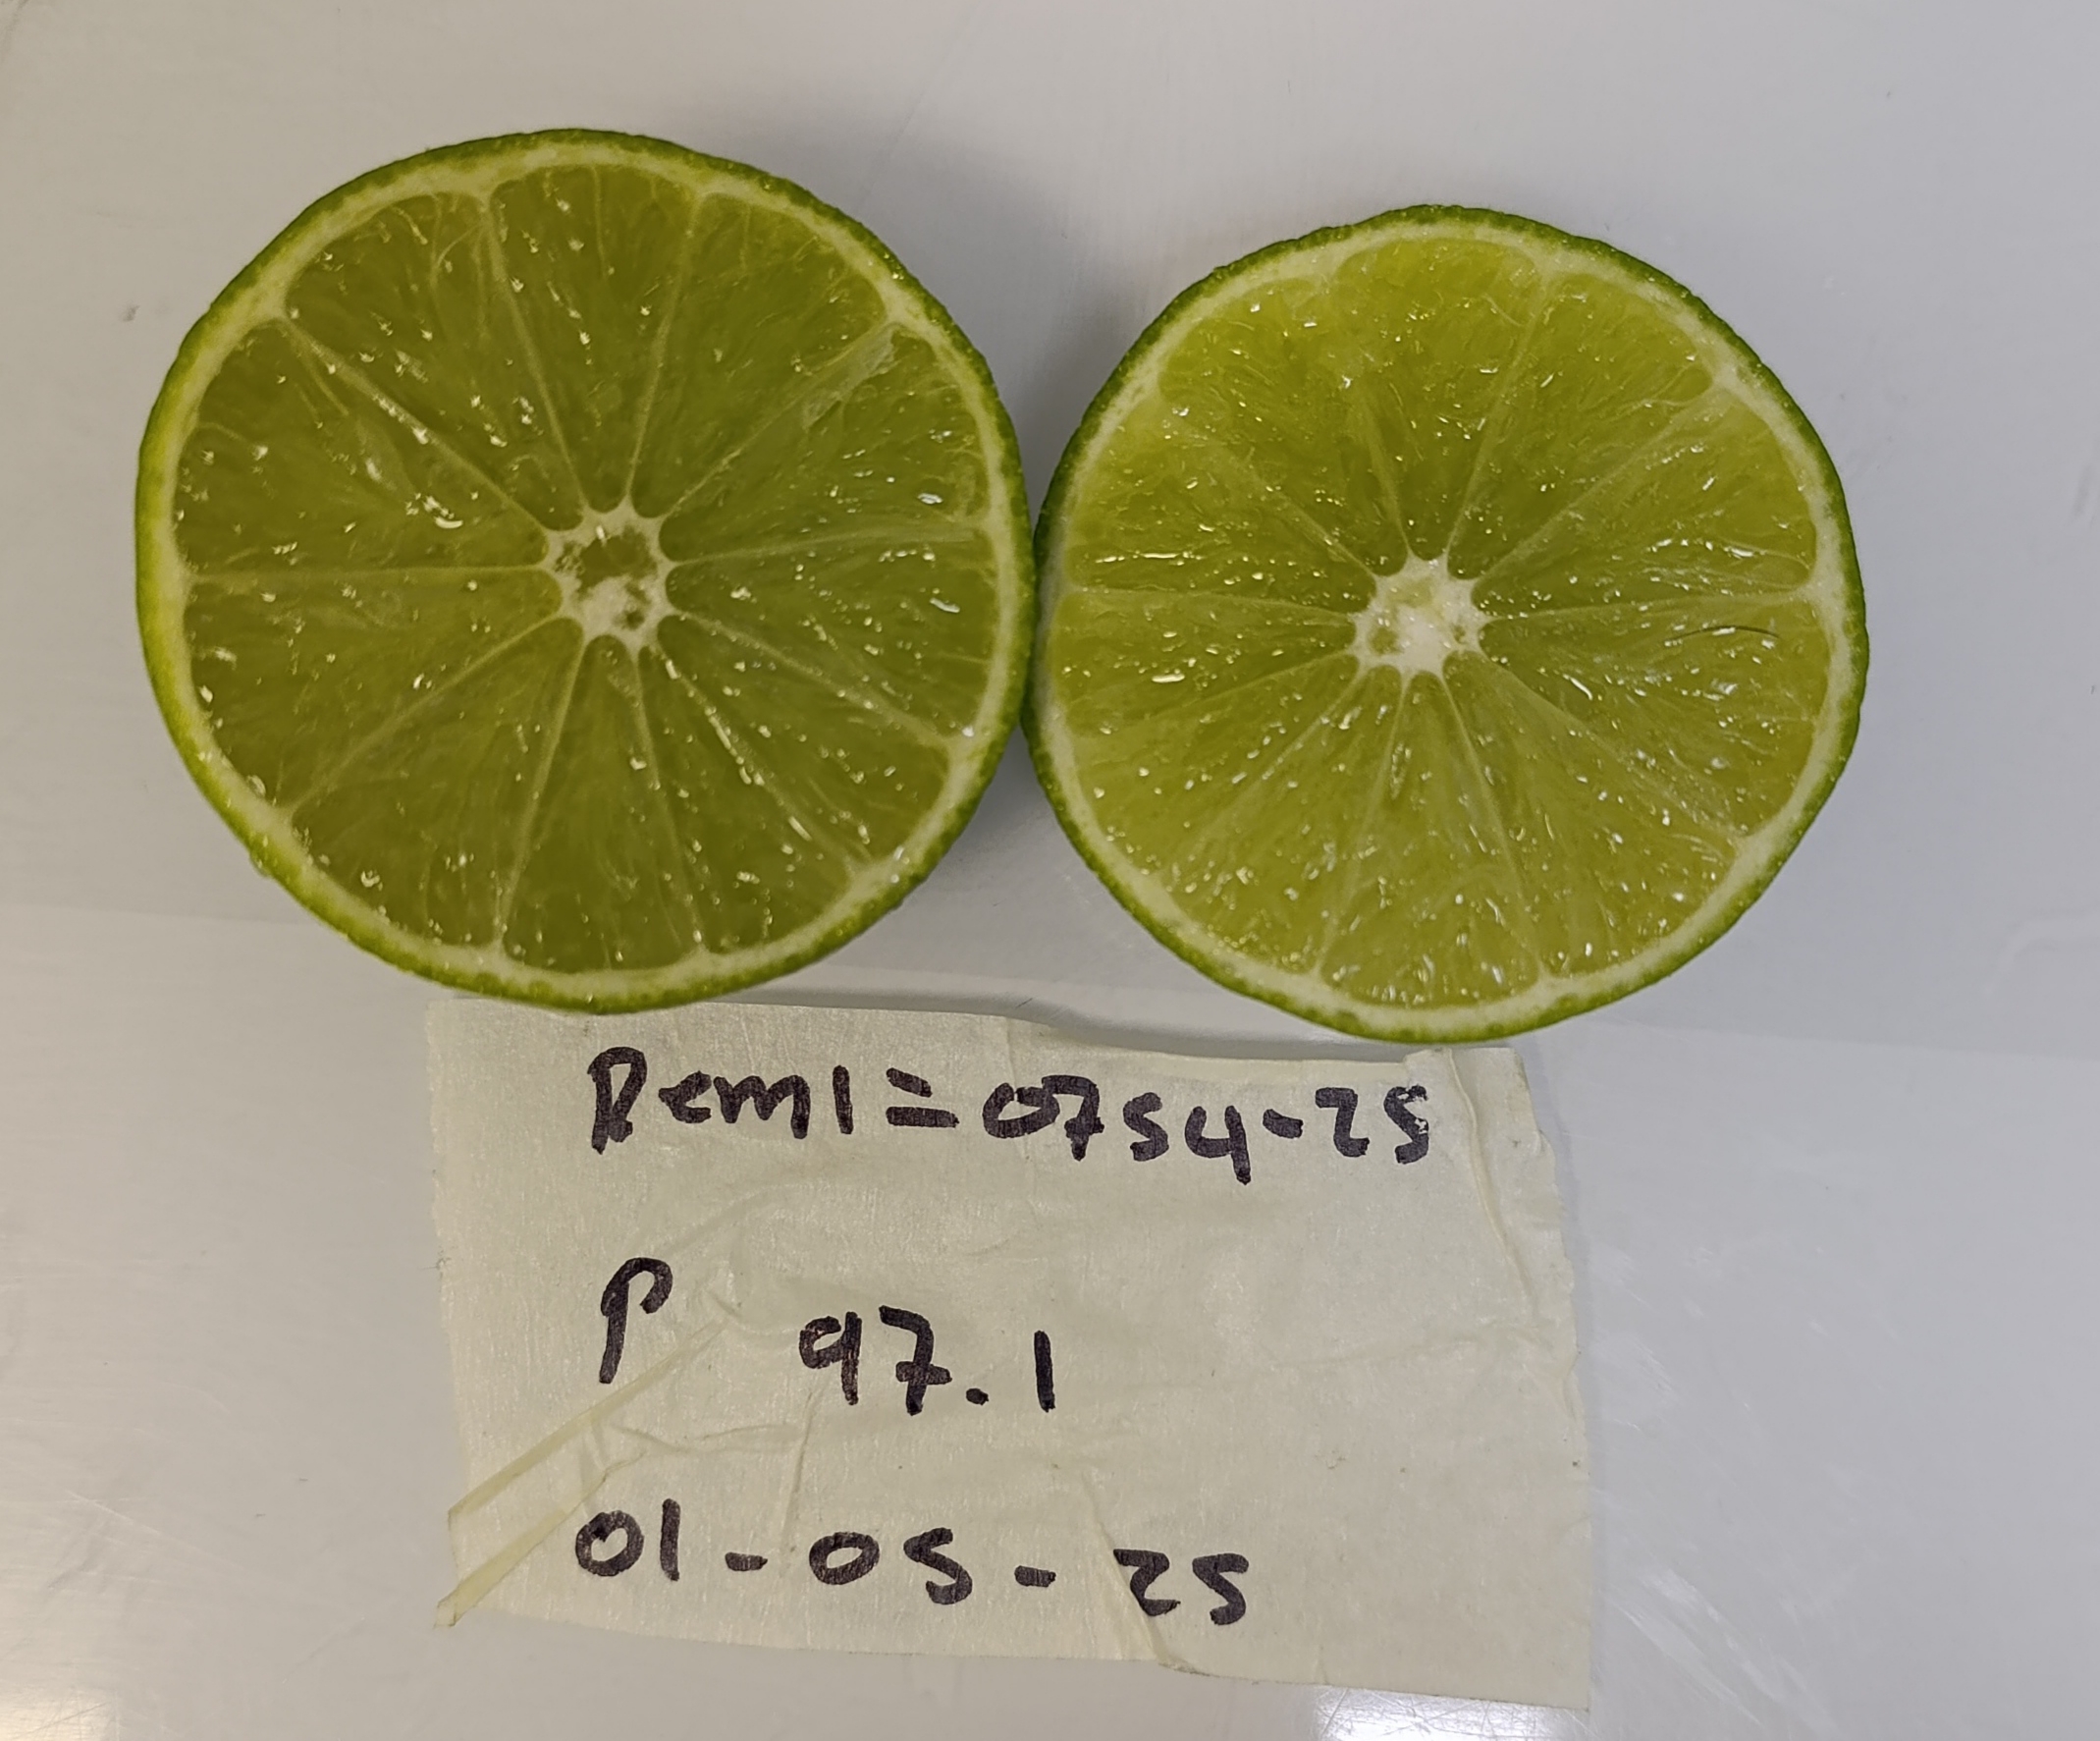 Rem1=0754-25
P 97.1
01-05-25